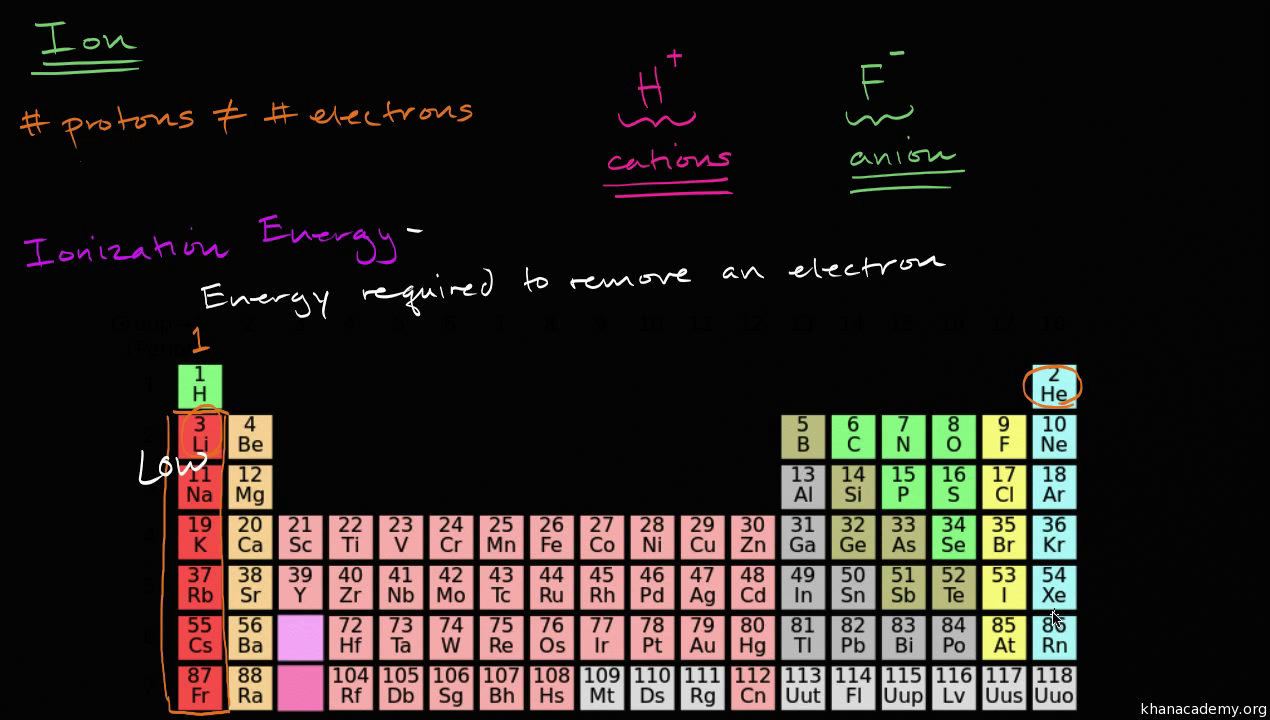 Ion
H+ F-
# protons ≠ # electrons
cations anion
Ionization Energy -
Energy required to remove an electron
1
1 2
H He
3 4 5 6 7 8 9 10
Li Be B C N O F Ne
Low
11 12 13 14 15 16 17 18
Na Mg Al Si P S Cl Ar
19 20 21 22 23 24 25 26 27 28 29 30 31 32 33 34 35 36
K Ca Sc Ti V Cr Mn Fe Co Ni Cu Zn Ga Ge As Se Br Kr
37 38 39 40 41 42 43 44 45 46 47 48 49 50 51 52 53 54
Rb Sr Y Zr Nb Mo Tc Ru Rh Pd Ag Cd In Sn Sb Te I Xe
55 56 72 73 74 75 76 77 78 79 80 81 82 83 84 85 86
Cs Ba Hf Ta W Re Os Ir Pt Au Hg Tl Pb Bi Po At Rn
87 88 104 105 106 107 108 109 110 111 112 113 114 115 116 117 118
Fr Ra Rf Db Sg Bh Hs Mt Ds Rg Cn Uut Fl Uup Lv Uus Uuo
khanacademy.org